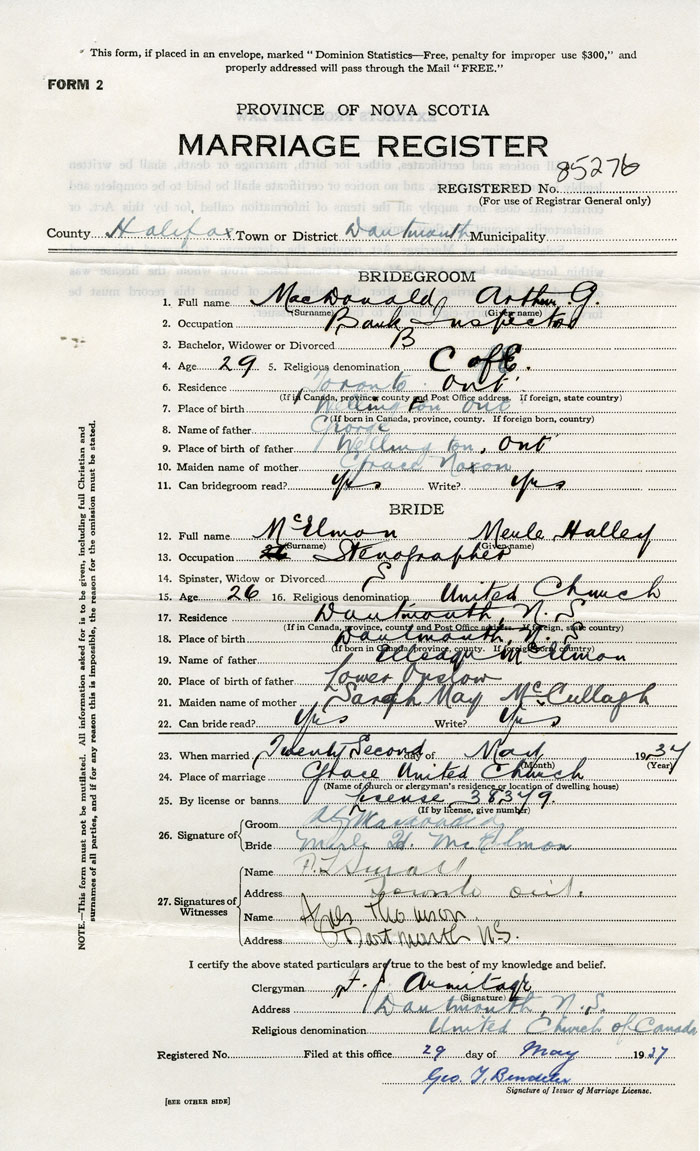 This form, if placed in an envelope, marked "Dominion Statistics—Free, penalty for improper use $300," and
properly addressed will pass through the Mail "FREE."
FORM 2
PROVINCE OF NOVA SCOTIA
MARRIAGE REGISTER
REGISTERED No. 85276
(For use of Registrar General only)
County Halifax Town or District Dartmouth Municipality
BRIDEGROOM
1. Full name MacDonald Arthur G.
(Surname) (Given name)
2. Occupation Bank Inspector
3. Bachelor, Widower or Divorced B
4. Age 29 5. Religious denomination C of E.
6. Residence Toronto Ont.
(If in Canada, province, county and Post Office address. If foreign, state country)
7. Place of birth Wellington Ont
(If born in Canada, province, county. If foreign born, country)
8. Name of father George
9. Place of birth of father Wellington, Ont
10. Maiden name of mother Grace Noxon
11. Can bridegroom read? Yes Write? Yes
BRIDE
12. Full name McElmon Merle Halley
(Surname) (Given name)
13. Occupation Stenographer
14. Spinster, Widow or Divorced S
15. Age 26 16. Religious denomination United Church
17. Residence Dartmouth N.S
(If in Canada, province, county and Post Office address. If foreign, state country)
18. Place of birth Dartmouth N.S
(If born in Canada, province, county. If foreign born, country)
19. Name of father McElmon
20. Place of birth of father Lower Onslow
21. Maiden name of mother Sarah May McCullagh
22. Can bride read? Yes Write? Yes
23. When married Twenty Second day of May 1937
(Month) (Year)
24. Place of marriage Grace United Church
(Name of church or clergyman's residence or location of dwelling house)
25. By license or banns License 38379.
(If by license, give number)
26. Signature of Groom AG MacDonald
Bride Merle H. McElmon
27. Signatures of Witnesses
Name Small
Address Toronto Ont.
Name Thomson.
Address Dartmouth NS.
I certify the above stated particulars are true to the best of my knowledge and belief.
Clergyman Armitage
(Signature)
Address Dartmouth, N.S.
Religious denomination United Church of Canada
Registered No. Filed at this office 29 day of May 1937
Geo.
Signature of Issuer of Marriage License.
[SEE OTHER SIDE]
NOTE.—This form must not be mutilated. All information asked for is to be given, including full Christian and
surnames of all parties, and if for any reason this is impossible, the reason for the omission must be stated.